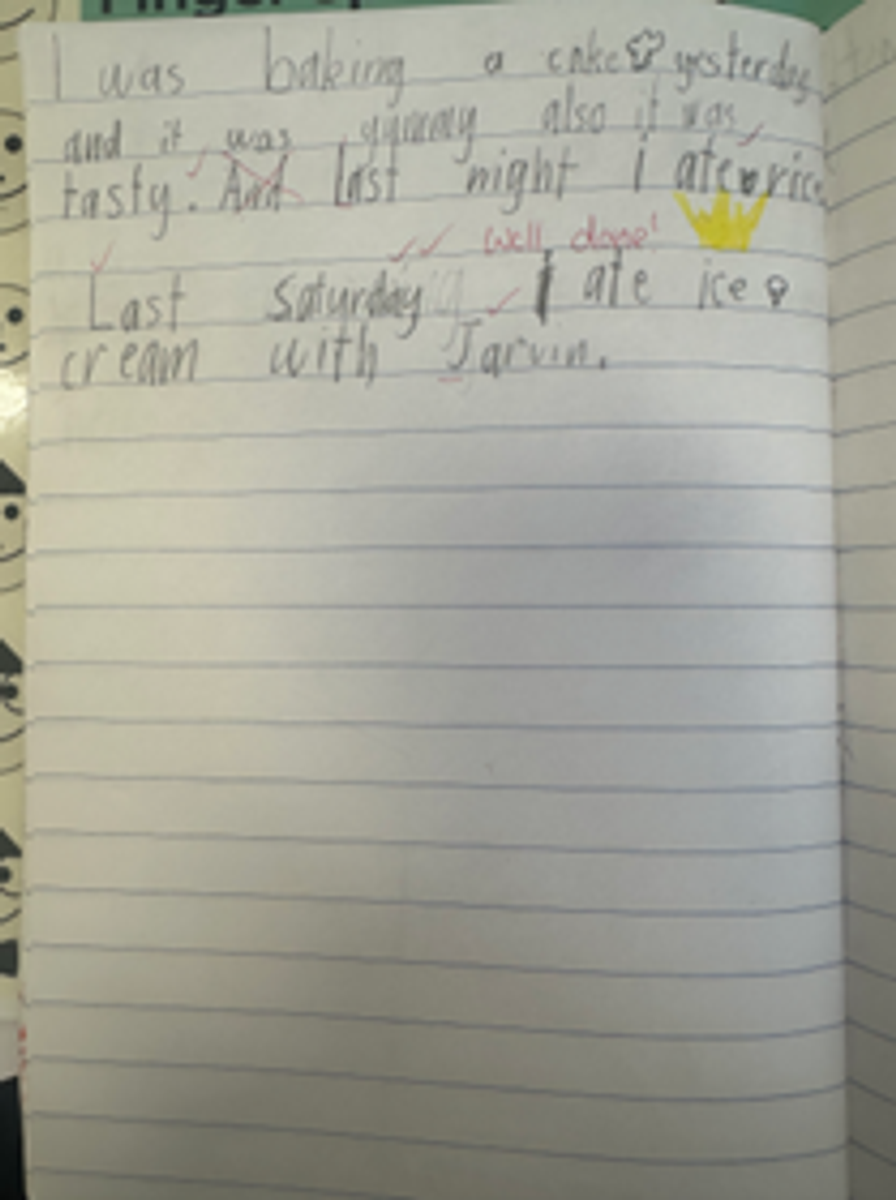 I was baking a cake yesterday
and it was yummy also it was
tasty. And Last night i ate rice
well done!
Last Saturday I ate ice
cream with Jarvin.